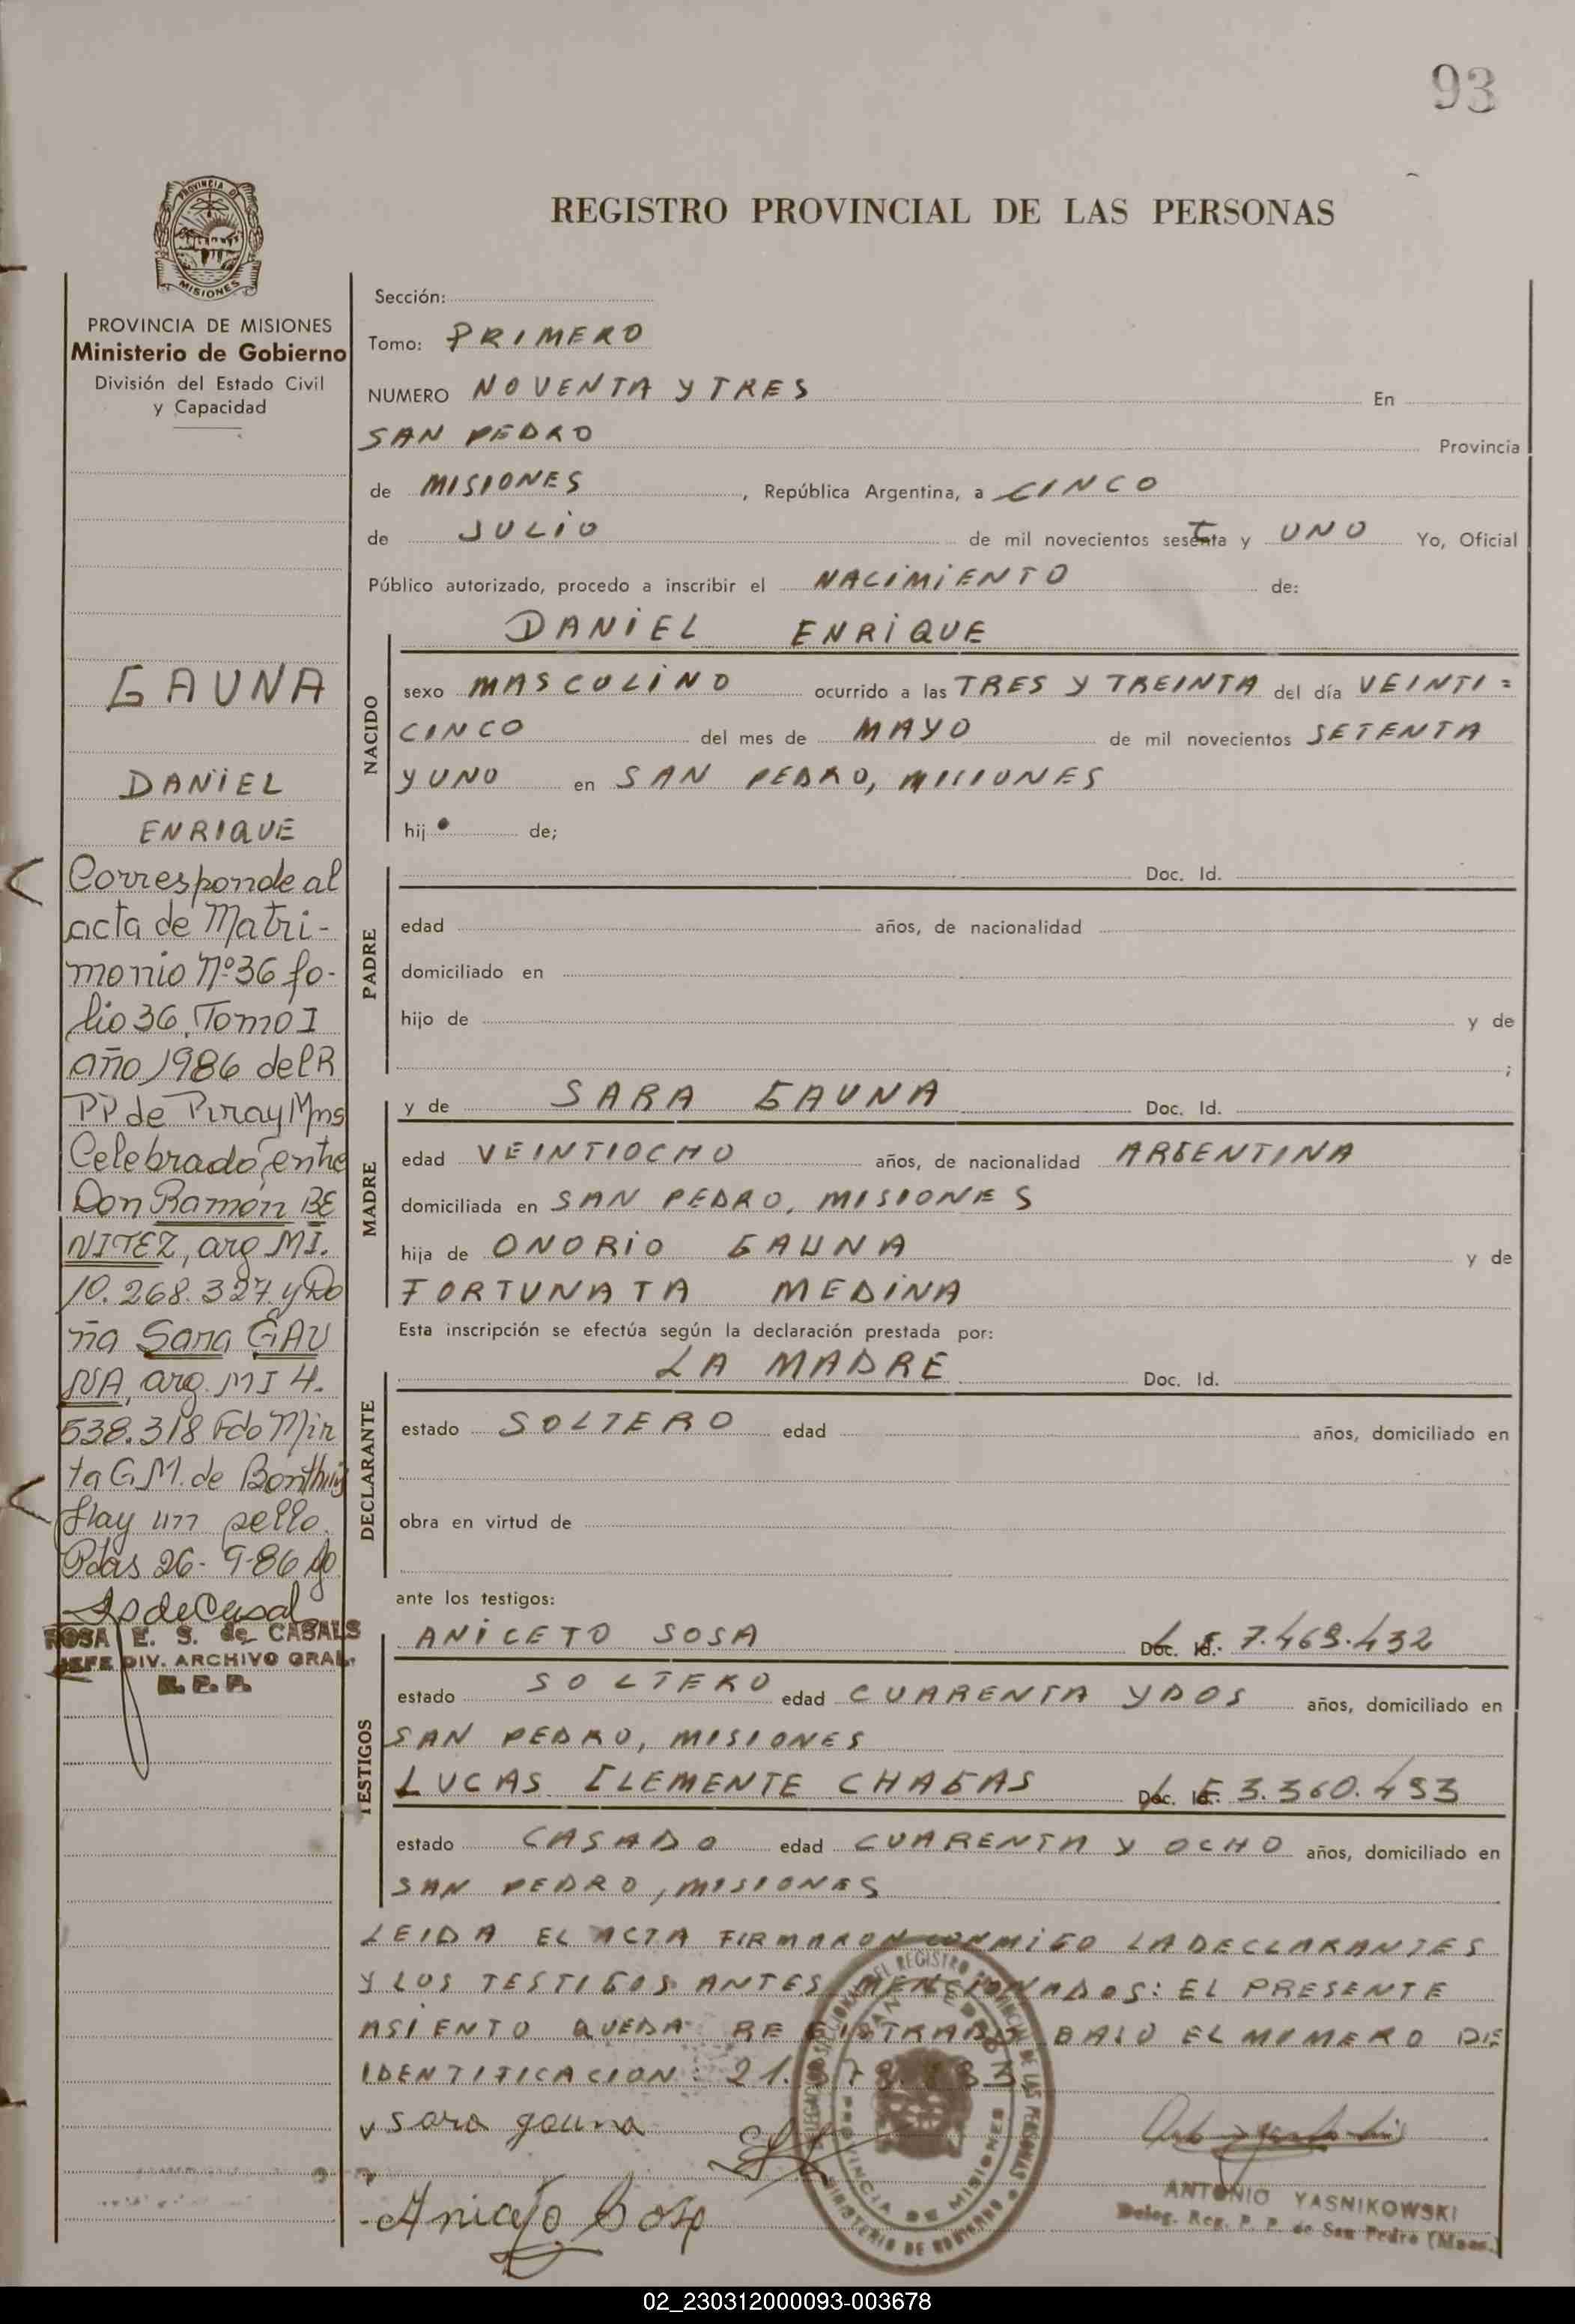 93
REGISTRO PROVINCIAL DE LAS PERSONAS
PROVINCIA DE MISIONES
PROVINCIA DE MISIONES
Ministerio de Gobierno
División del Estado Civil
y Capacidad
GAUNA
DANIEL
ENRIQUE
Corresponde al
acta de Matri-
monio Nº 36 fo-
lio 36, Tomo I
año 1986 del R
PP de Piray Mns
Celebrado entre
Don Ramón BE
NITEZ, arg MI.
10.268.327 y Do
ña Sara GAU
NA, arg. MI 4.
538.318 Fdo Mir
ta G M. de
Hay un sello.
Pdas 26-9-86
ROSA E. S. de CASALS
JEFE DIV. ARCHIVO GRAL.
R. P. P.
Sección:
Tomo: PRIMERO
NUMERO NOVENTA Y TRES En
SAN PEDRO Provincia
de MISIONES, República Argentina, a CINCO
de JULIO de mil novecientos setenta y UNO Yo, Oficial
Público autorizado, procedo a inscribir el NACIMIENTO de:
DANIEL ENRIQUE
NACIDO
sexo MASCULINO ocurrido a las TRES Y TREINTA del día VEINTI=
CINCO del mes de MAYO de mil novecientos SETENTA
Y UNO en SAN PEDRO, MISIONES
hijo de;
PADRE
Doc. Id.
edad años, de nacionalidad
domiciliado en
hijo de y de
;
MADRE
y de SARA GAUNA Doc. Id.
edad VEINTIOCHO años, de nacionalidad ARGENTINA
domiciliada en SAN PEDRO, MISIONES
hija de ONORIO GAUNA y de
FORTUNATA MEDINA
Esta inscripción se efectúa según la declaración prestada por:
DECLARANTE
LA MADRE Doc. Id.
estado SOLTERO edad años, domiciliado en
obra en virtud de
ante los testigos:
TESTIGOS
ANICETO SOSA Doc. Id. L E 7.469.432
estado SOLTERO edad CUARENTA Y DOS años, domiciliado en
SAN PEDRO, MISIONES
LUCAS CLEMENTE CHAGAS Doc. Id. L E 3.360.493
estado CASADO edad CUARENTA Y OCHO años, domiciliado en
SAN PEDRO, MISIONES
LEIDA EL ACTA FIRMARON CONMIGO LA DECLARANTES
Y LOS TESTIGOS ANTES MENCIONADOS: EL PRESENTE
ASIENTO QUEDA REGISTRADO BAJO EL NUMERO DE
IDENTIFICACION: 21.
Sara gauna
Aniceto Sosa
PROVINCIA DE MISIONES
MINISTERIO DE GOBIERNO
ANTONIO YASNIKOWSKI
Deleg. Reg. P. P. de San Pedro (Mnes.)
02_230312000093-003678